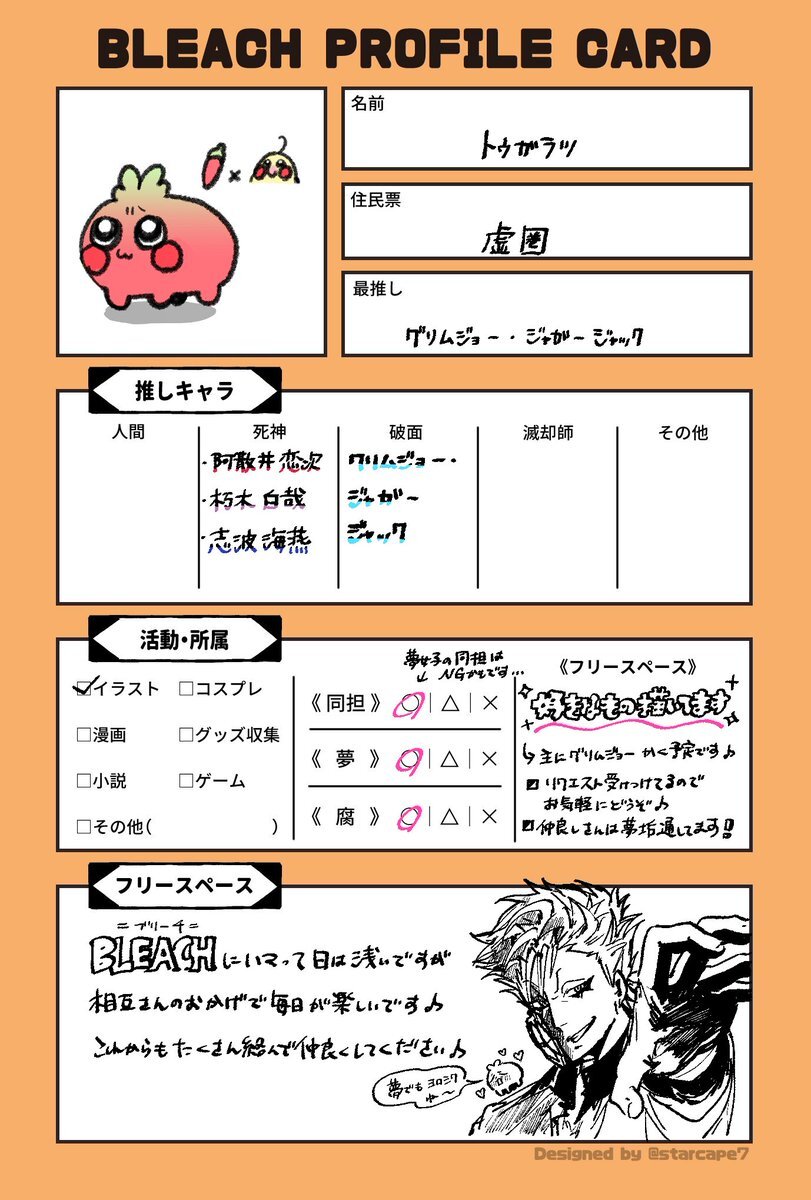 BLEACH PROFILE CARD
名前
トウガラツ
住民票
虚圏
最推し
グリムジョー・ジャガージャック
推しキャラ
人間
死神
破面
滅却師
その他
・阿散井恋次
・朽木白哉
・志波海燕
グリムジョー・
ジャガー
ジャック
活動・所属
イラスト
コスプレ
漫画
グッズ収集
小説
ゲーム
その他( )
夢女子の同担は
↓ NGかもです…
《同担》 ○|△|×
《 夢 》 ○|△|×
《 腐 》 ○|△|×
《フリースペース》
好きなもの描いてます
↳主にグリムジョーかく予定です♪
リクエスト受けつけてるので
お気軽にどうぞ♪
仲良しさんは夢垢通してます!!
フリースペース
=ブリーチ=
BLEACHにハマって日は浅いですが
相互さんのおかげで毎日が楽しいです♪
これからもたくさん絡んで仲良くしてください♪
夢でもヨロシク
ね〜
Designed by @starcape7